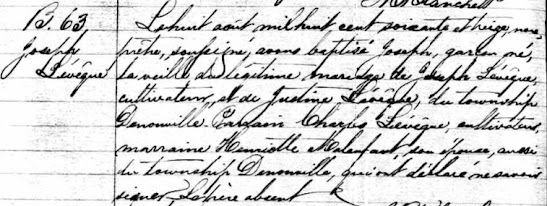 B. 63
Joseph
Lévêque
Le huit août mil huit cent soixante et treize, nous
prêtre, soussigné, avons baptisé Joseph, garçon né,
la veille du légitime mariage de Joseph Lévêque,
cultivateur, et de Justine Lévêque, du township
Denonville. Parrain Charles Lévêque, cultivateur,
marraine Henriette Malenfant, son épouse, aussi
du township Denonville, qui ont déclaré ne savoir
signer, Le père absent